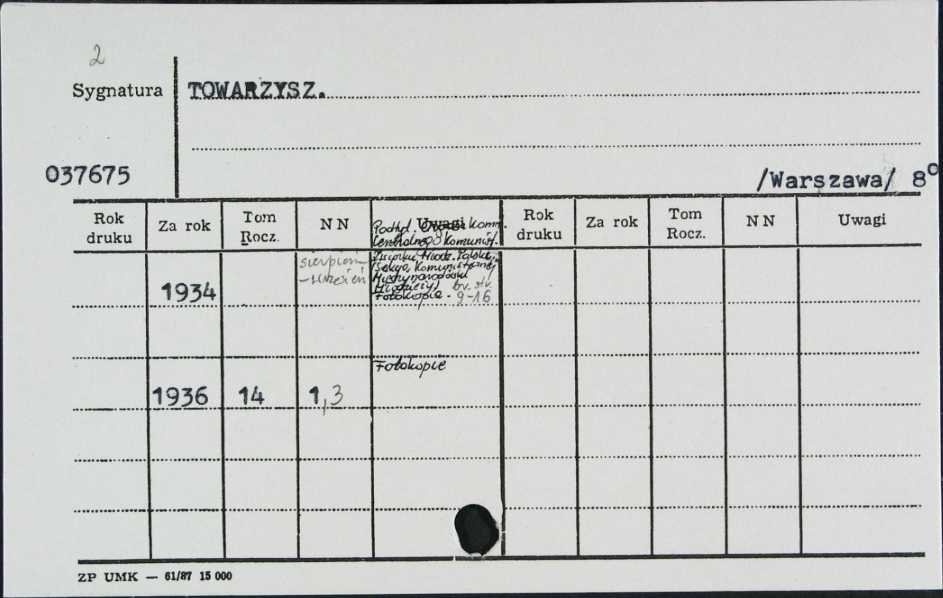 2
Sygnatura
TOWARZYSZ.
037675
/Warszawa/ 8°
Rok druku Za rok Tom Rocz. N N Uwagi Rok druku Za rok Tom Rocz. N N Uwagi
Podtyt. Kom.
Centralnego Komunist.
Związku Młodz. Polski.
(Sekcja Komunistycznej
Międzynarodówki
Młodzieży) br. str.
Fotokopie. 9-16
1934 sierpień
-wrzesień
Fotokopie
1936 14 1,3
ZP UMK — 61/87 15 000